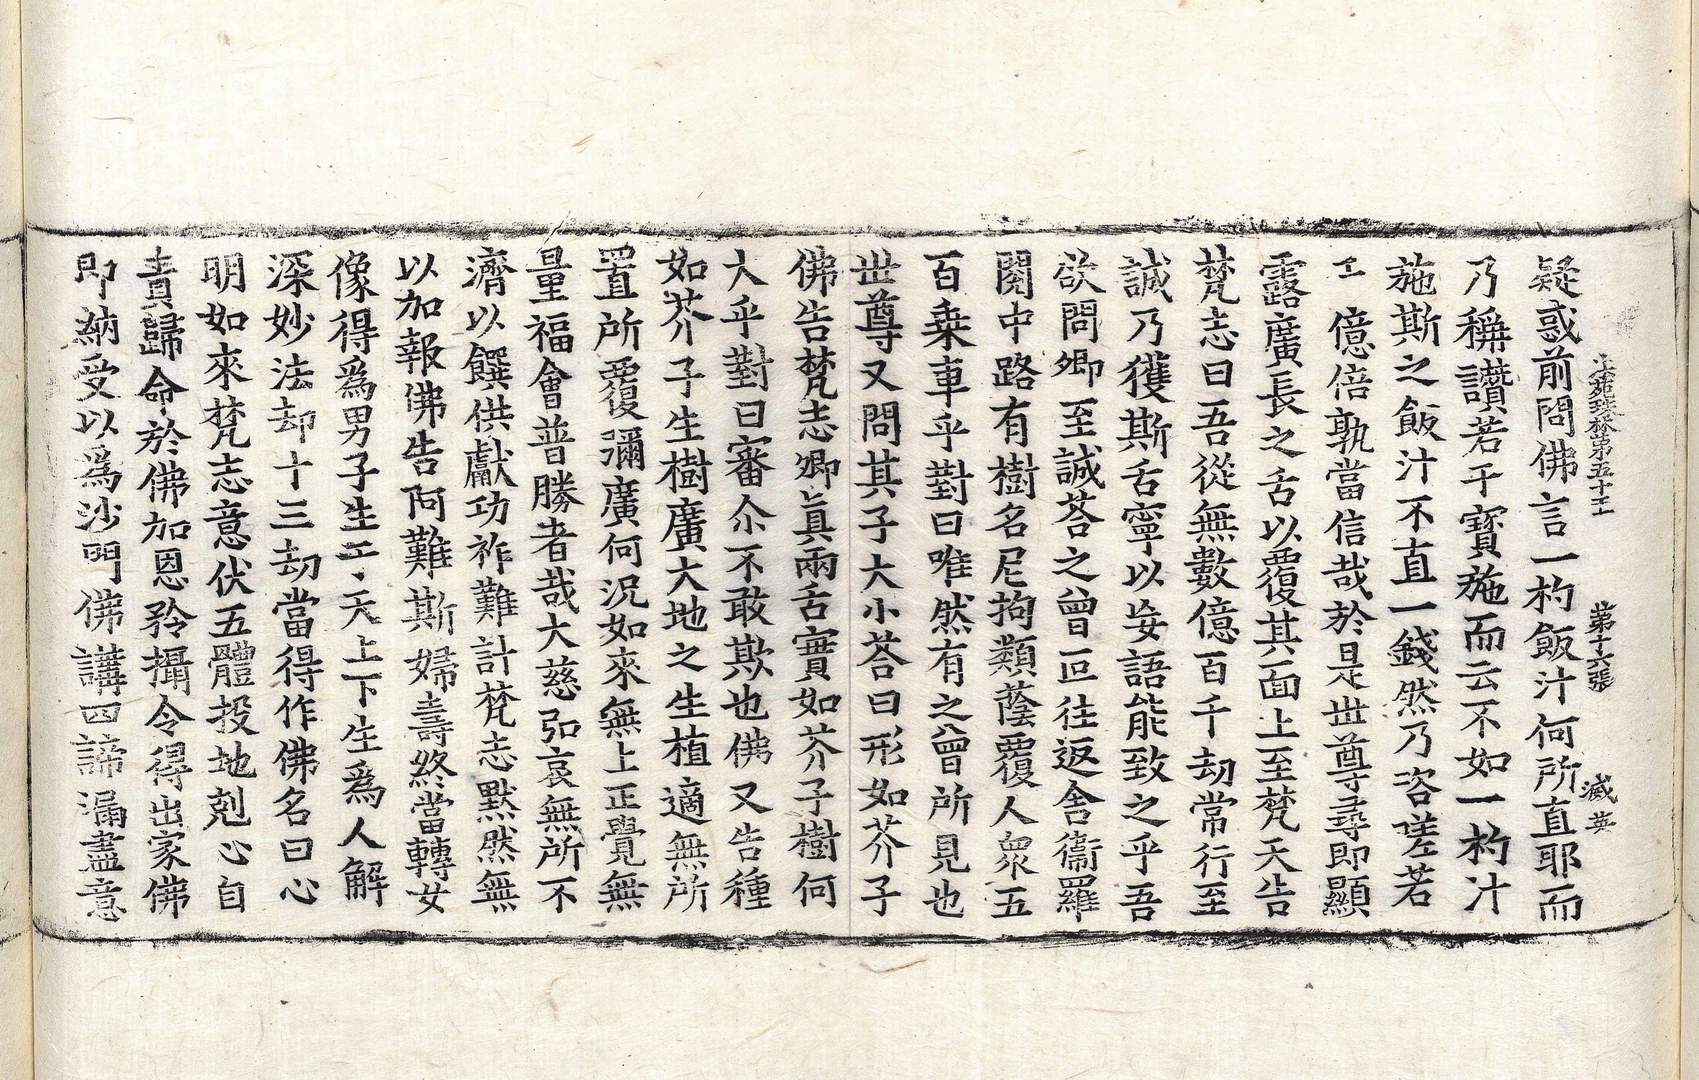 法苑珠林第五十三 第十六張 滅英
疑惑前問佛言一杓飯汁何所直耶而
乃稱讚若千寶施而云不如一杓汁
施斯之飯汁不直一錢然乃咨嗟若
億倍孰當信哉於是世尊尋即顯
露廣長之舌以覆其面上至梵天告
梵志曰吾從無數億百千劫常行至
誠乃獲斯舌寧以妄語能致之乎吾
欲問卿至誠荅之曾叵往返舍衞羅
閱中路有樹名尼拘類蔭覆人衆五
百乗車乎對曰唯然有之曾所見也
世尊又問其子大小荅曰形如芥子
佛告梵志卿真兩舌實如芥子樹何
大乎對曰審尒不敢欺也佛又告種
如芥子生樹廣大地之生植適無所
置所覆彌廣何況如來無上正覺無
量福會普勝者哉大慈弘哀無所不
濟以饌供獻功祚難計梵志默然無
以加報佛告阿難斯婦壽終當轉女
像得爲男子生二天上下生爲人解
深妙法却十三劫當得作佛名曰心
明如來梵志意伏五體投地剋心自
責歸命於佛加恩矜攝令得出家佛
即納受以爲沙門佛講四諦漏盡意